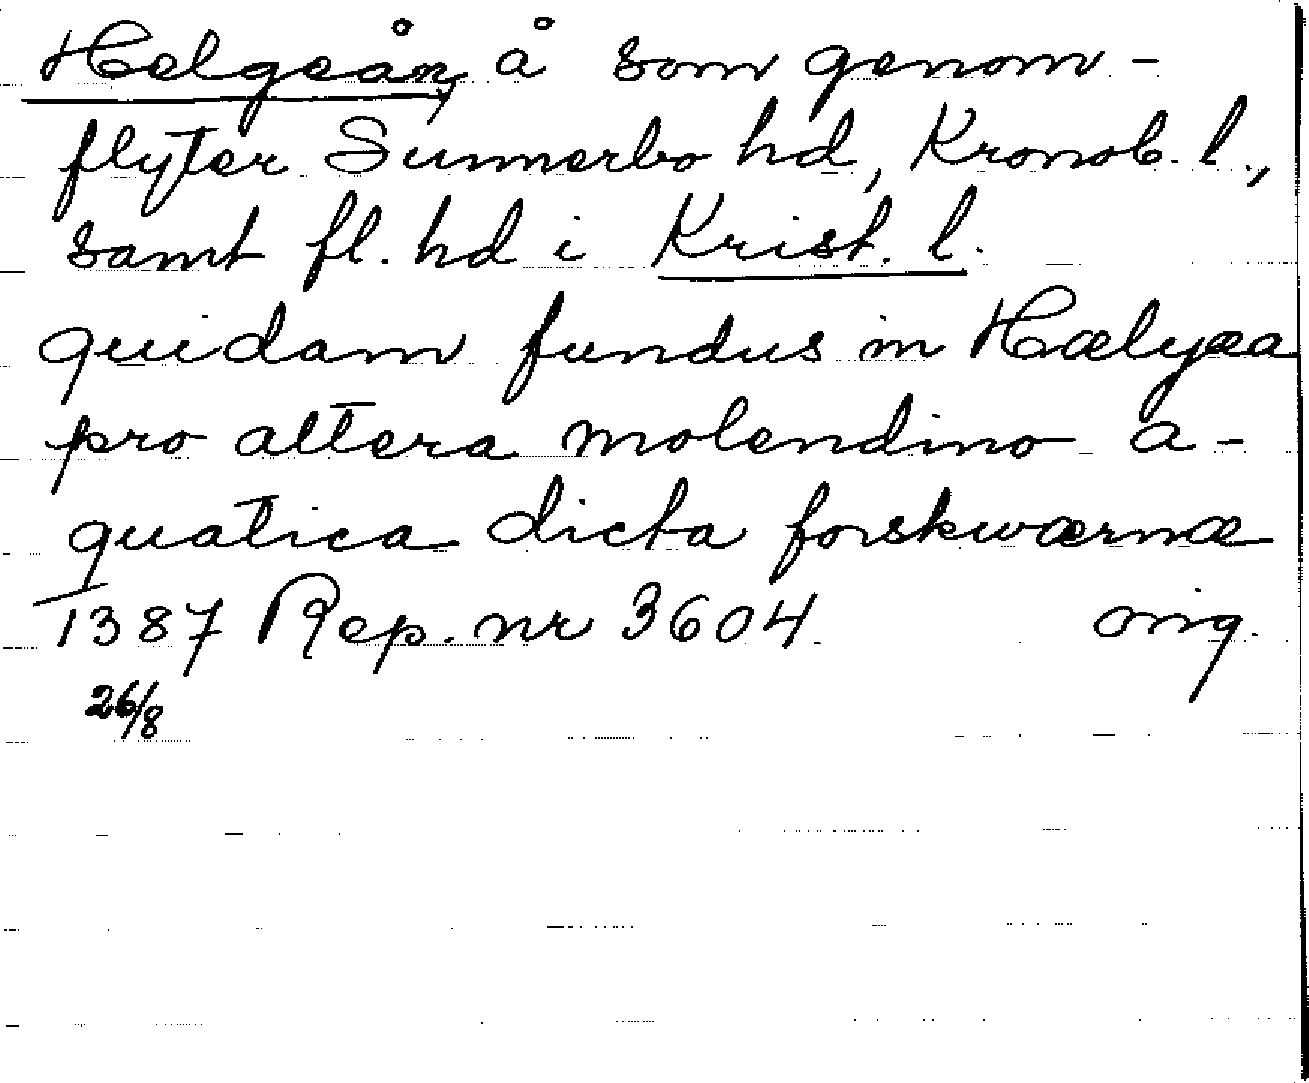 Helgeån, å som genom-
flyter Sunnerbo hd, Kronob. l.,
samt fl. hd i Krist. l.
quidam fundus in Hælyæa
pro altera molendino a-
quatica dicta forskwærnæ
1387 Rep. nr 3604 orig.
26/8